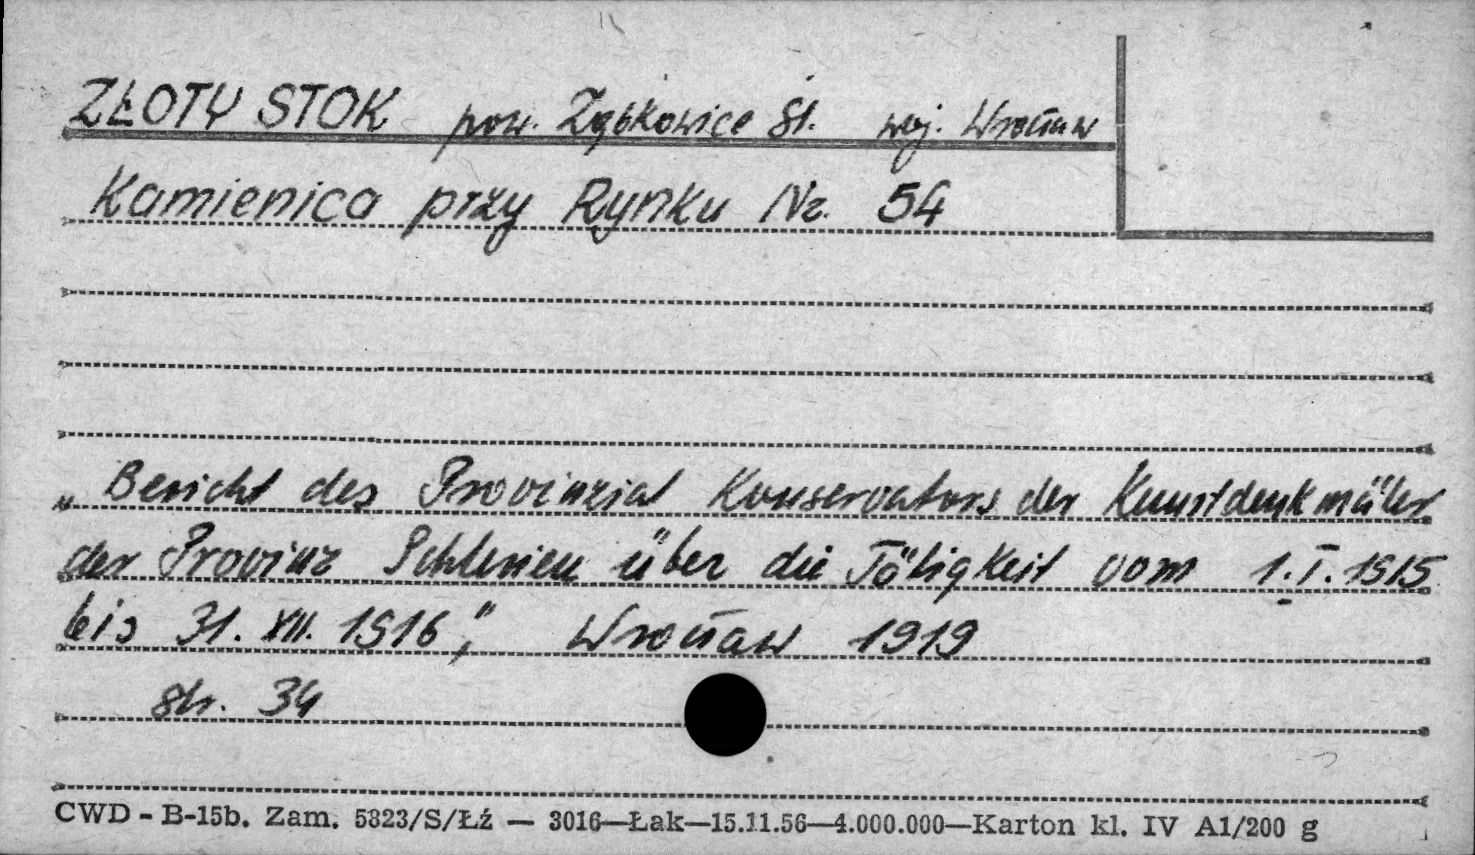 ZŁOTY STOK pow. Ząbkowice Śl. woj. Wrocław
Kamienica przy Rynku Nr. 54
„Bericht des Provinzial Konservators der Kunstdenkmäler
der Provinz Schlesien über die Tätigkeit vom 1.I.1915
bis 31.XII.1916," Wrocław 1919
str. 34
CWD - B-15b. Zam. 5823/S/Łź — 3016—Łak—15.11.56—4.000.000—Karton kl. IV A1/200 g